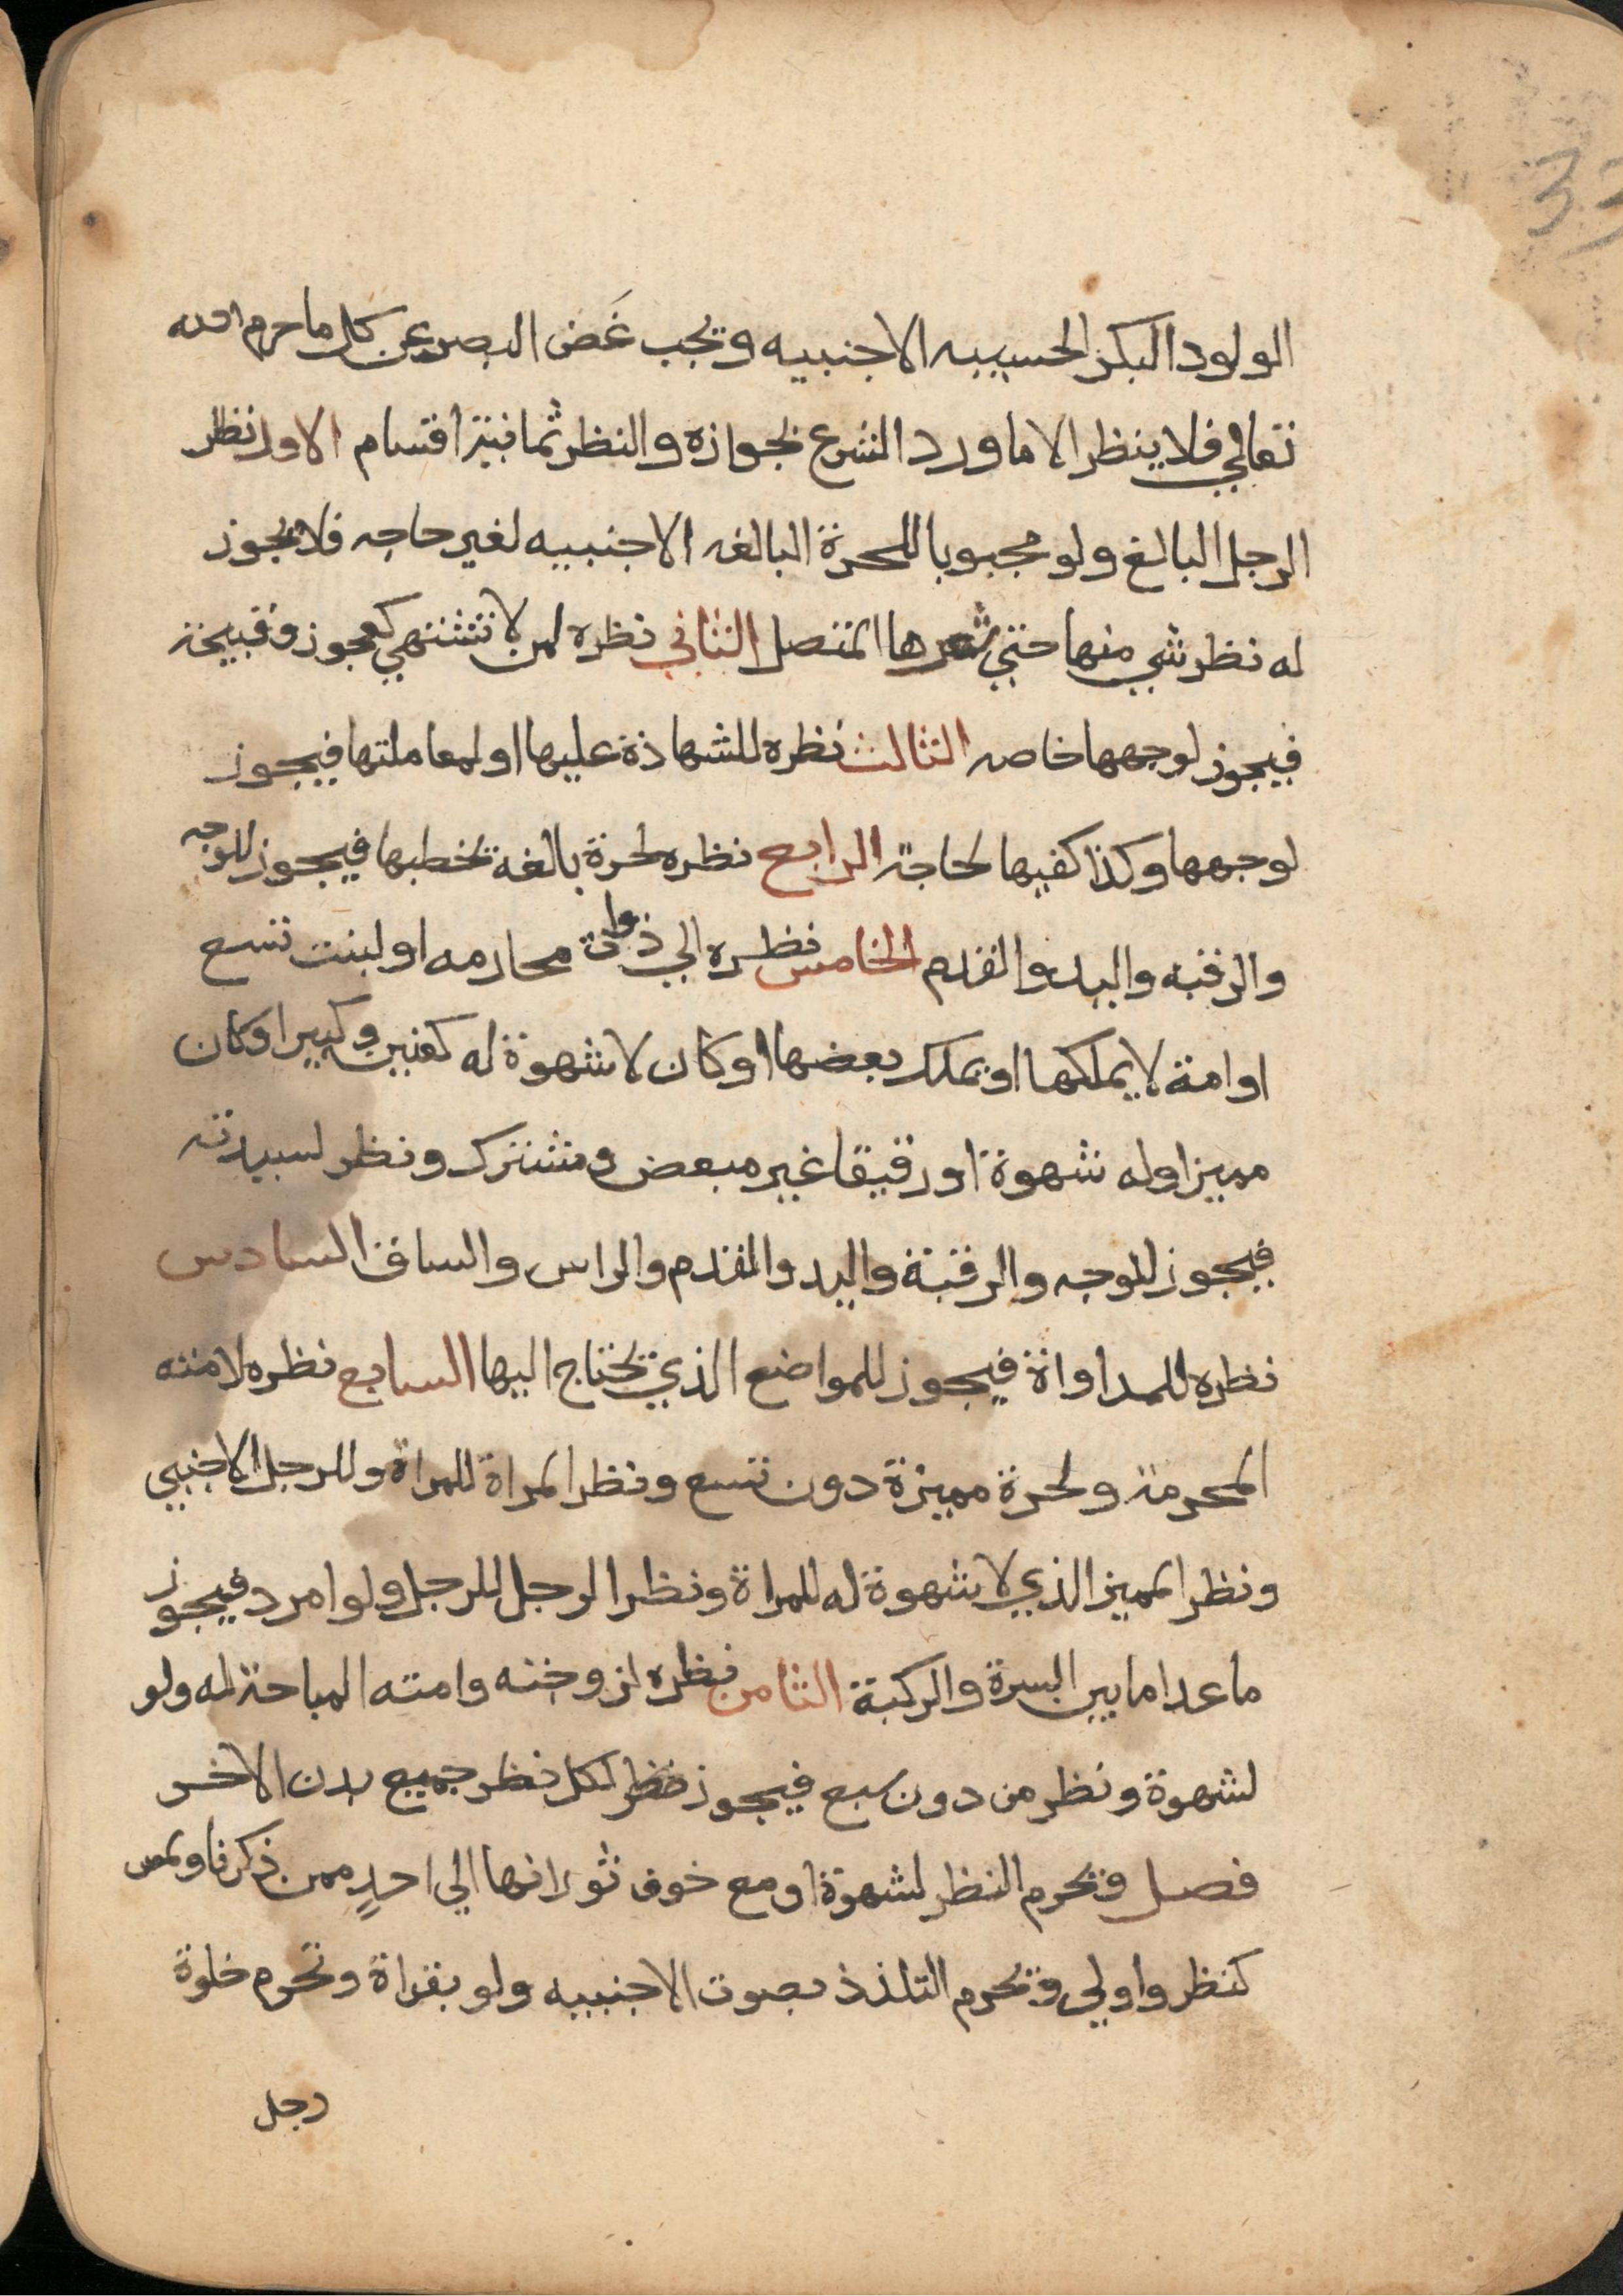 33
الولود البكر الحسيبه الاجنبيه ويجب غَض البصر عن كل ما حرم الله
تعالي فلا ينظر الا ما ورد الشرع بجوازه والنظر ثمانية اقسام الاول نظر
الرجل البالغ ولو مجبوبا للحرة البالغه الاجنبيه لغير حاجه فلا يجوز
له نظر شي منها حتي شعرها المتصل الثاني نظره لمن لا تشتهي كعجوز وقبيحة
فيجوز لوجهها خاصه الثالث نظره للشهادة عليها او لمعاملتها فيجوز
لوجهها وكذا كفيها لحاجة الرابع نظره لحرة بالغة يخطبها فيجوز للوجه
والرقبه واليد والقدم الخامس نظره الي ذوات محارمه او لبنت تسع
او امة لا يملكها او يملك بعضها او كان لا شهوة له كعنين وكبير او كان
مميزا وله شهوة او رقيقا غير مبعض ومشترك ونظر لسيدته
فيجوز للوجه والرقبة واليد والقدم والراس والساق السادس
نظره للمداواة فيجوز للمواضع الذي يحتاج اليها السابع نظره لامته
المحرمة ولحرة مميزة دون تسع ونظر المراة للمراة وللرجل الاجنبي
ونظر المميز الذي لا شهوة له للمراة ونظر الرجل للرجل ولو امرد فيجوز
ما عدا ما بين السرة والركبة الثامن نظره لزوجته وامته المباحة له ولو
لشهوة ونظر من دون سبع فيجوز لكل نظر جميع بدن الاخر
فصل ويحرم النظر لشهوة او مع خوف ثورانها الي احدٍ ممن ذكرنا ولمس
كنظر واولي ويحرم التلذذ بصوت الاجنبيه ولو بقراة وتحرم خلوة
رجل